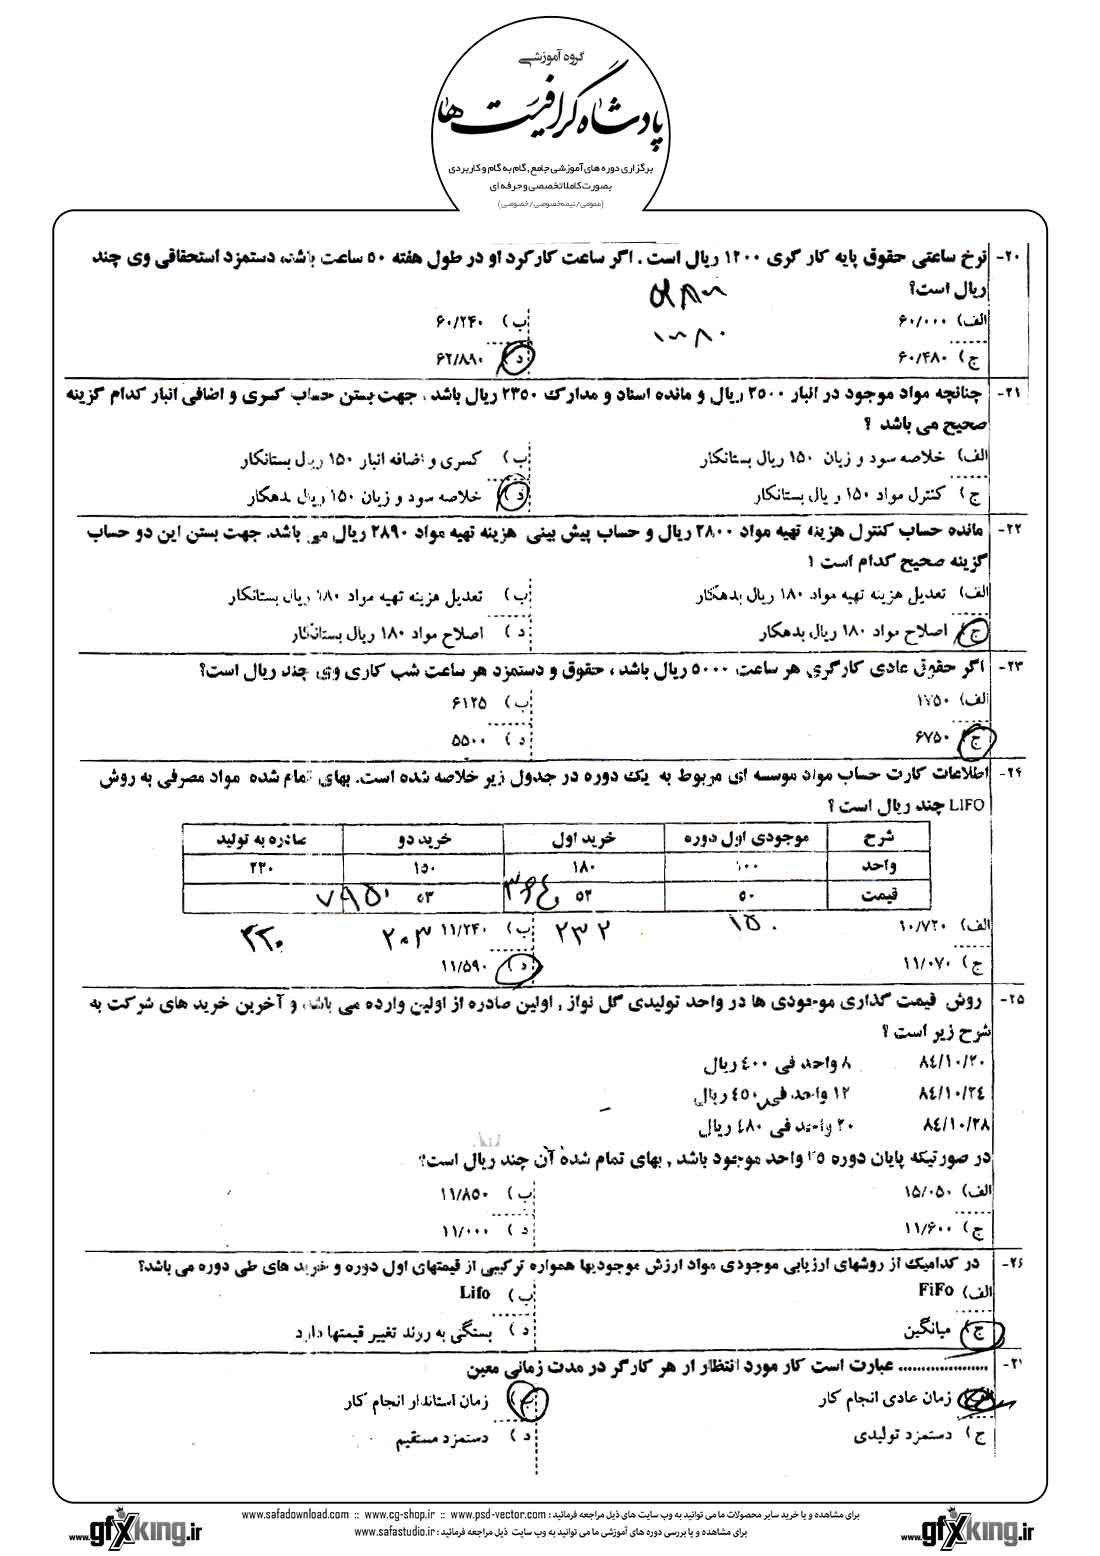 گروه آموزشی
پادشاه گرافیست ها
برگزاری دوره های آموزشی جامع, گام به گام و کاربردی
بصورت کاملا تخصصی و حرفه ای
(عمومی/نیمه خصوصی/خصوصی)
۲۰- نرخ ساعتی حقوق پایه کارگری ۱۲۰۰ ریال است . اگر ساعت کارکرد او در طول هفته ۵۰ ساعت باشد، دستمزد استحقاقی وی چند
ریال است؟
الف) ۶۰/۰۰۰ ب) ۶۰/۲۴۰
ج) ۶۰/۴۸۰ د) ۶۲/۸۸۰
۲۱- چنانچه مواد موجود در انبار ۲۵۰۰ ریال و مانده اسناد و مدارک ۲۳۵۰ ریال باشد . جهت بستن حساب کسری و اضافی انبار کدام گزینه
صحیح می باشد ؟
الف) خلاصه سود و زیان ۱۵۰ ریال بستانکار ب) کسری و اضافه انبار ۱۵۰ ریال بستانکار
ج) کنترل مواد ۱۵۰ ریال بستانکار د) خلاصه سود و زیان ۱۵۰ ریال بدهکار
۲۲- مانده حساب کنترل هزینه تهیه مواد ۲۸۰۰ ریال و حساب پیش بینی هزینه تهیه مواد ۲۸۹۰ ریال می باشد. جهت بستن این دو حساب
گزینه صحیح کدام است ؟
الف) تعدیل هزینه تهیه مواد ۱۸۰ ریال بدهکار ب) تعدیل هزینه تهیه مواد ۱۸۰ ریال بستانکار
ج) اصلاح مواد ۱۸۰ ریال بدهکار د) اصلاح مواد ۱۸۰ ریال بستانکار
۲۳- اگر حقوق عادی کارگری هر ساعت ۵۰۰۰ ریال باشد ، حقوق و دستمزد هر ساعت شب کاری وی چند ریال است؟
الف) ۱۷۵۰ ب) ۶۱۲۵
ج) ۶۷۵۰ د) ۵۵۰۰
۲۴- اطلاعات کارت حساب مواد موسسه ای مربوط به یک دوره در جدول زیر خلاصه شده است. بهای تمام شده مواد مصرفی به روش
LIFO چند ریال است ؟
شرح موجودی اول دوره خرید اول خرید دو صادره به تولید
واحد ۱۰۰ ۱۸۰ ۱۵۰ ۲۲۰
قیمت ۵۰ ۵۲ ۵۳
۷۹۵۰ ۳۶۴
الف) ۱۰/۷۲۰ ب) ۱۱/۲۴۰
۱۵۰ ۲۳۲ ۲۰۳ ۲۲۰
ج) ۱۱/۰۷۰ د) ۱۱/۵۹۰
۲۵- روش قیمت گذاری موجودی ها در واحد تولیدی گل نواز , اولین صادره از اولین وارده می باشد, و آخرین خرید های شرکت به
شرح زیر است ؟
۸۴/۱۰/۲۰ ۸ واحد فی ۴۰۰ ریال
۸۴/۱۰/۲۴ ۱۲ واحد فی ۴۵۰ ریال
۸۴/۱۰/۲۸ ۲۰ واحد فی ۴۸۰ ریال
در صورتیکه پایان دوره ۲۵ واحد موجود باشد , بهای تمام شده آن چند ریال است؟
الف) ۱۵/۰۵۰ ب) ۱۱/۸۵۰
ج) ۱۱/۶۰۰ د) ۱۱/۰۰۰
۲۶- در کدامیک از روشهای ارزیابی موجودی مواد ارزش موجودیها همواره ترکیبی از قیمتهای اول دوره و خرید های طی دوره می باشد؟
الف) FiFo ب) Lifo
ج) میانگین د) بستگی به روند تغییر قیمتها دارد
۲۱- .................... عبارت است کار مورد انتظار از هر کارگر در مدت زمانی معین
الف) زمان عادی انجام کار ب) زمان استاندار انجام کار
ج) دستمزد تولیدی د) دستمزد مستقیم
برای مشاهده و یا خرید سایر محصولات ما می توانید به وب سایت های ذیل مراجعه فرمائید : www.safadownload.com :: www.cg-shop.ir :: www.psd-vector.com
برای مشاهده و یا بررسی دوره های آموزشی ما می توانید به وب سایت ذیل مراجعه فرمائید : www.safastudio.ir
www.gfxking.ir
www.gfxking.ir